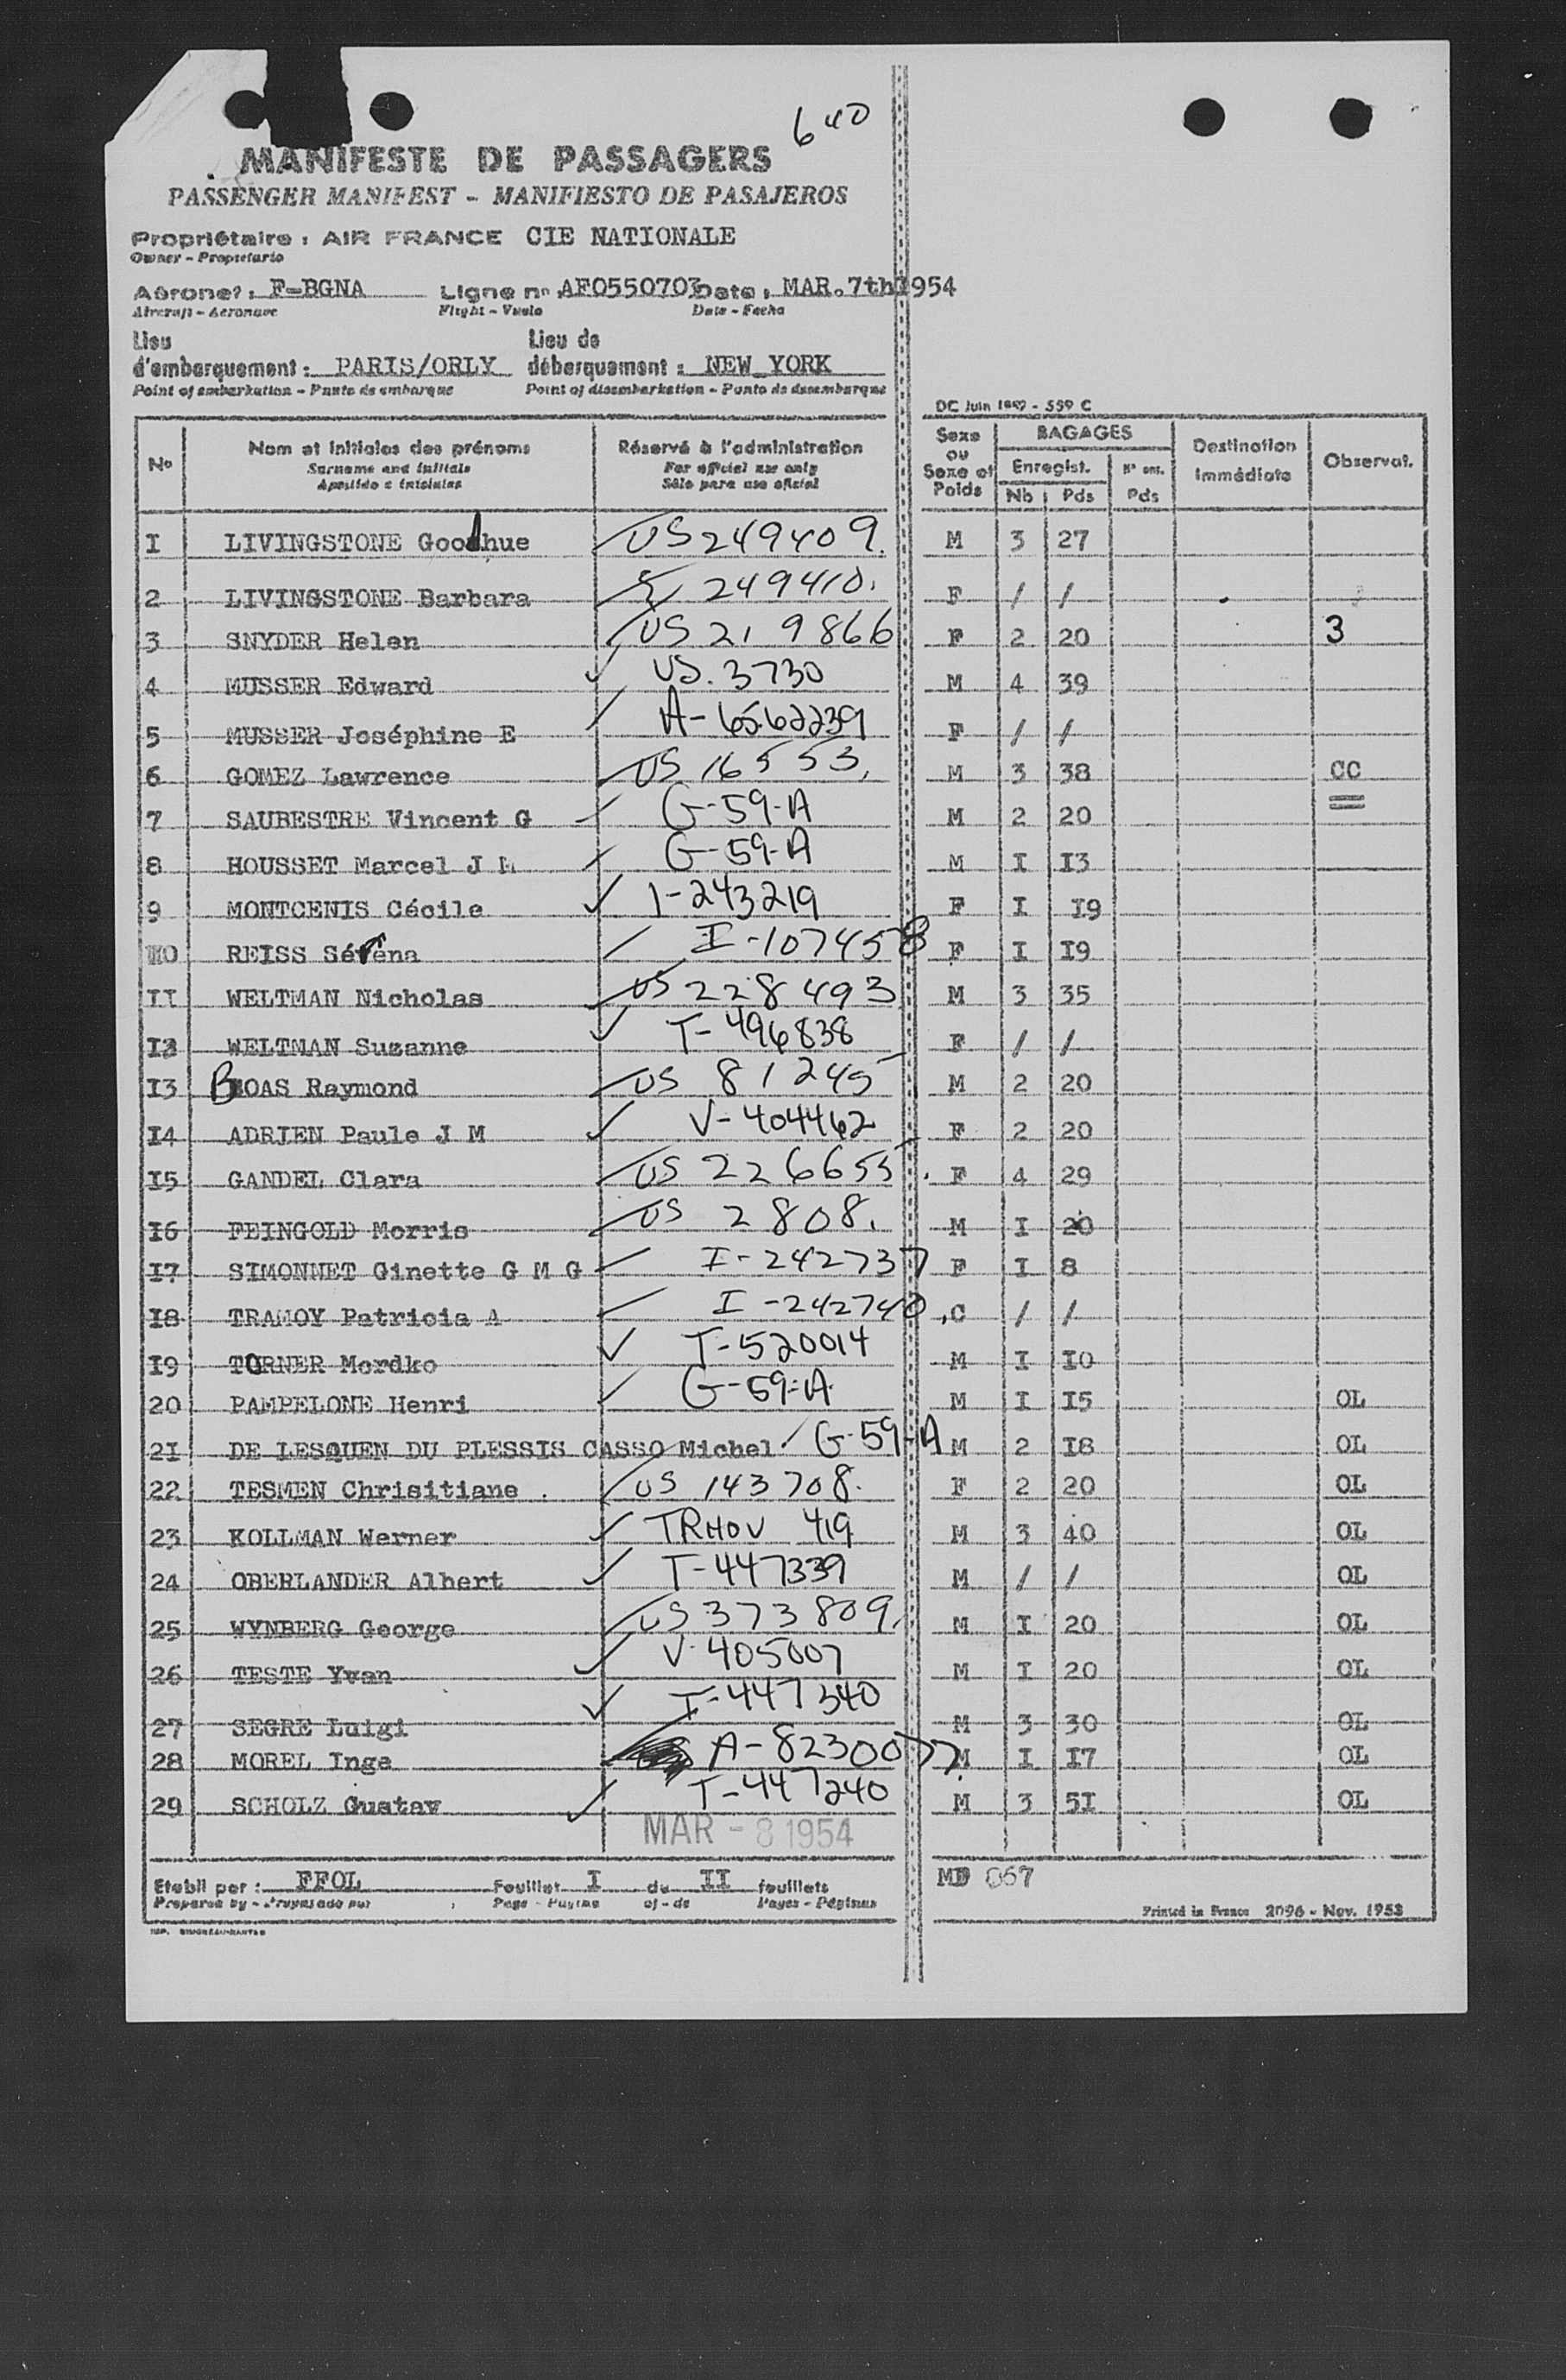 640
MANIFESTE DE PASSAGERS
PASSENGER MANIFEST - MANIFIESTO DE PASAJEROS
Propriétaire : AIR FRANCE CIE NATIONALE
Owner - Propietario
Aéronef : F-BGNA Ligne nº AF0550703 Date : MAR. 7th 1954
Aircraft - Aeronave Flight - Vuelo Date - Fecha
Lieu d'embarquement : PARIS/ORLY Lieu de débarquement : NEW YORK
Point of embarkation - Punto de embarque Point of disembarkation - Punto de desembarque
DC Juin 1952 - 559 C
Nº Nom et initiales des prénoms Réservé à l'administration Sexe ou Sexe et Poids BAGAGES Destination immédiate Observat.
Surname and initials For official use only Enregist. Nº ent.
Apellido e iniciales Sólo para uso oficial Nb Pds Pds
I LIVINGSTONE Goodhue US 249409. M 3 27
2 LIVINGSTONE Barbara 249410. F / /
3 SNYDER Helen US 219866 F 2 20 3
4 MUSSER Edward US. 3730 M 4 39
5 MUSSER Joséphine E A-6562239 F / /
6 GOMEZ Lawrence US 16553. M 3 38 CC
7 SAUBESTRE Vincent G G-59-A M 2 20
8 HOUSSET Marcel J M G-59-A M I I3
9 MONTCENIS Cécile I-243219 F I I9
I0 REISS Séréna I-107458 F I I9
II WELTMAN Nicholas US 228493 M 3 35
I2 WELTMAN Suzanne T-496838 F / /
I3 BOAS Raymond US 81245 M 2 20
I4 ADRIEN Paule J M V-404462 F 2 20
I5 GANDEL Clara US 226655. F 4 29
I6 FEINGOLD Morris US 2808. M I 20
I7 SIMONNET Ginette G M G I-242737 F I 8
I8 TRAMOY Patricia A I-242740 C / /
I9 TORNER Mordko T-520014 M I I0
20 PAMPELONE Henri G-59-A M I I5 OL
2I DE LESQUEN DU PLESSIS CASSO Michel G-59-A M 2 I8 OL
22 TESMEN Chrisitiane US 143708. F 2 20 OL
23 KOLLMAN Werner TRHOV 419 M 3 40 OL
24 OBERLANDER Albert T-447339 M / / OL
25 WYNBERG George US 373809. M I 20 OL
26 TESTE Yvan V-405007 M I 20 OL
27 SEGRE Luigi T-447340 M 3 30 OL
28 MOREL Inge A-8230077 M I I7 OL
29 SCHOLZ Gustav T-447240 M 3 5I OL
MAR - 8 1954
Etabli par : FFOL Feuillet I de II feuillets MD 067
Prepared by - Preparado por Page - Página of - de Pages - Páginas Printed in France 2096 - Nov. 1953